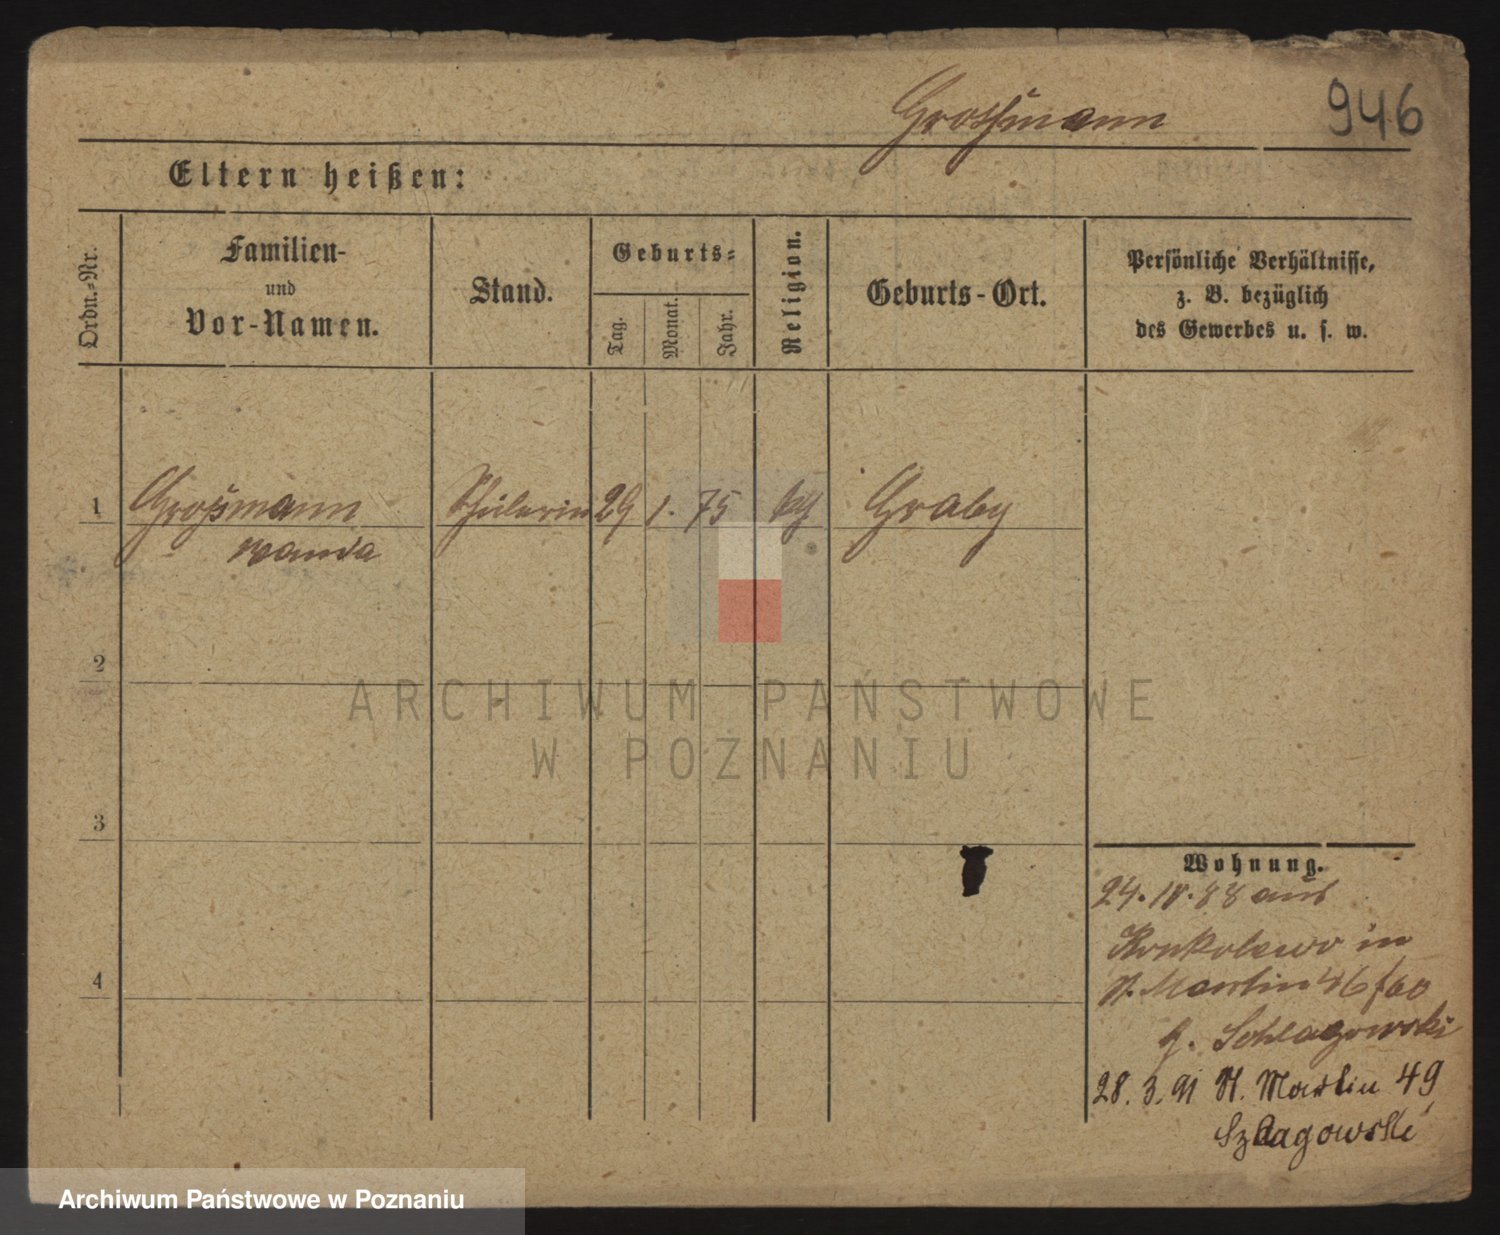 Großmann
946
Eltern heißen:
Ordn.-Nr.
Familien-
und
Vor-Namen.
Stand.
Geburts-
Tag.
Monat.
Jahr.
Religion.
Geburts-Ort.
Persönliche Verhältnisse,
z. B. bezüglich
des Gewerbes u. s. w.
1
Großmann
Wanda
Schülerin
29
1.
75
kth
Graby
2
3
4
Wohnung.
24. 10. 88 aus
Konkolewo in
St. Martin 46/60
b. Schlagowski
28. 3. 91 St. Martin 49
Szlagowski
ARCHIWUM PAŃSTWOWE
W POZNANIU
Archiwum Państwowe w Poznaniu